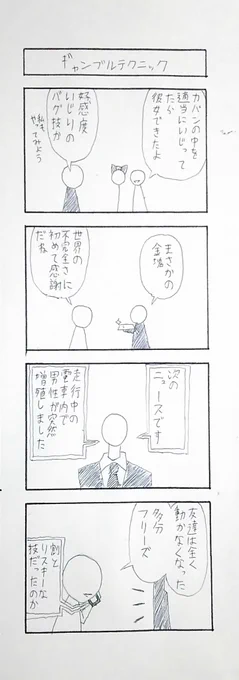 ギャンブルテクニック
カバンの中を
適当にいじって
たら
彼女できたよ
好感度
いじりの
バグ技か
私も
やってみよう
まさかの
金塊
世界の
不完全さに
初めて感謝
だね
次の
ニュースです
走行中の
電車内で
男性が突然
増殖しました
友達は全く
動かなくなった
多分
フリーズ
割と
リスキーな
技だったのか